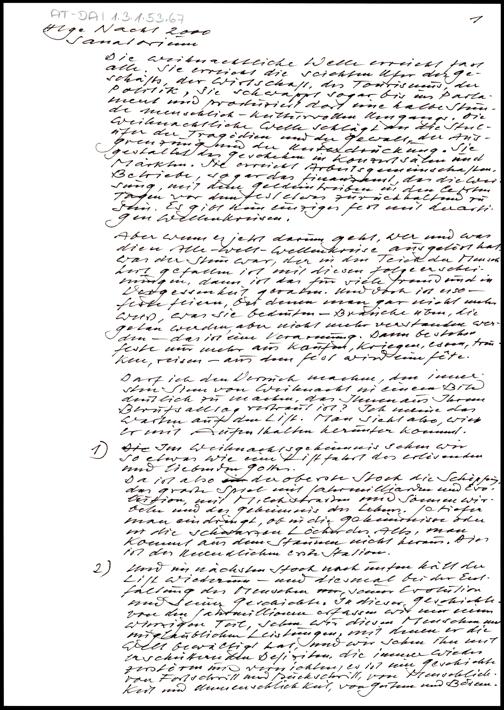 AT-DAI 1.3.1.53.67
1
Hlge Nacht 2000
Sanatorium
Die weihnachtliche Welle erreicht fast
alle. Sie erreicht die seichten Ufer des Ge-
schäfts, der Wirtschaft, des Tourismus, der
Politik, sie schwappt sogar bis ins Parla-
ment und produziert dort eine halbe Stun-
de menschlich-kulturvollen Umgangs. Die
weihnachtliche Welle schlägt an die Steil-
ufer der Tragödien und der Gewalt, der Aus-
grenzung und der Unterdrückung. Sie
gestaltet das Geschehen in Konzertsälen und
Märkten. Sie erreicht Arbeitsgemeinschaften,
Betriebe, sogar das
mit dem in den letzten
Tagen vor dem Fest etwas zurückhaltend zu
sein. Es gibt kein einziges Fest mit derarti-
gen Wellenkreisen.
Aber wenn es jetzt darum geht, wer und was
diese Aller-Welts-Wellenkreise ausgelöst hat,
was der Stein war, der in den Teich der Mensch
heit gefallen ist mit diesen Folgeerschei-
nungen, dann ist das für viele fremd und in
Vergessenheit geraten. Und doch ist es so:
Feste feiern, bei denen man gar nicht mehr
weiß, was sie bedeuten – Bräuche üben, die
getan werden, aber nicht mehr verstanden wer-
den – das ist eine Verarmung. Dann bestehen
Feste nur mehr aus kaufen, kriegen, essen, trin-
ken, reisen – aus dem Fest wird eine Fete.
Darf ich den Versuch machen, den inner-
sten Sinn von Weihnacht in einem Bild
deutlich zu machen, das Ihnen aus Ihrem
Berufsalltag vertraut ist? Ich meine das
Warten auf den Lift. Man sieht also, wie
er mit Aufenthalten herunter kommt.
1) Im Weihnachtsgeheimnis sehen wir
so etwas wie eine Liftfahrt des erlösenden
und liebenden Gottes.
Da ist also der oberste Stock die Schöpfung,
das große Spiel mit Jahrmilliarden und Evo-
lution, mit Milchstraßen und Sonnenwir-
beln und das Geheimnis des Lebens. Je tiefer
man eindringt, ob in die Geheimnisse oder
in die schwarzen Löcher des Alls, man
kommt aus dem Staunen nicht heraus. Dies
ist des Unendlichen erste Station.
2) Und im nächsten Stock nach unten hält der
Lift wiederum – und diesmal bei der Ent-
faltung des Menschen, seiner Evolution
und seiner Geschichte. In dieser Geschichte
von der Jahrmillionen erfassen wir nur einen
winzigen Teil, sehen wir diesen Menschen in
unglaublichen Leistungen, mit denen er die
Welt bewältigt hat, und wir sehen ihn mit
erschütternden Defiziten, die immer wieder
zerstören und vernichten; es ist eine Geschichte
von Fortschritt und Rückschritt, von Menschlich-
keit und Unmenschlichkeit, von Gutem und Bösem.